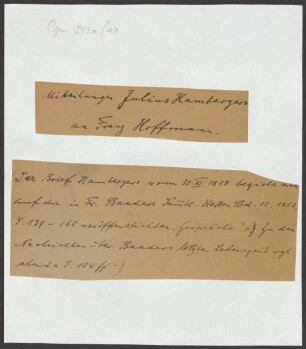 Cgm 5420/12
Mitteilungen Julius Hambergers
an Franz Hoffmann.
Der Brief Hambergers vom 10 XI 1859 bezieht sich
auf die in Fr. Baaders Sämtl. Werken Bd. 15, 1857
S. 139 - 160 veröffentlichten „Gespräche" :-) Zu den
Nachrichten über Baaders letzte Lebenszeit vgl.
ebenda S. 124 ff :-)